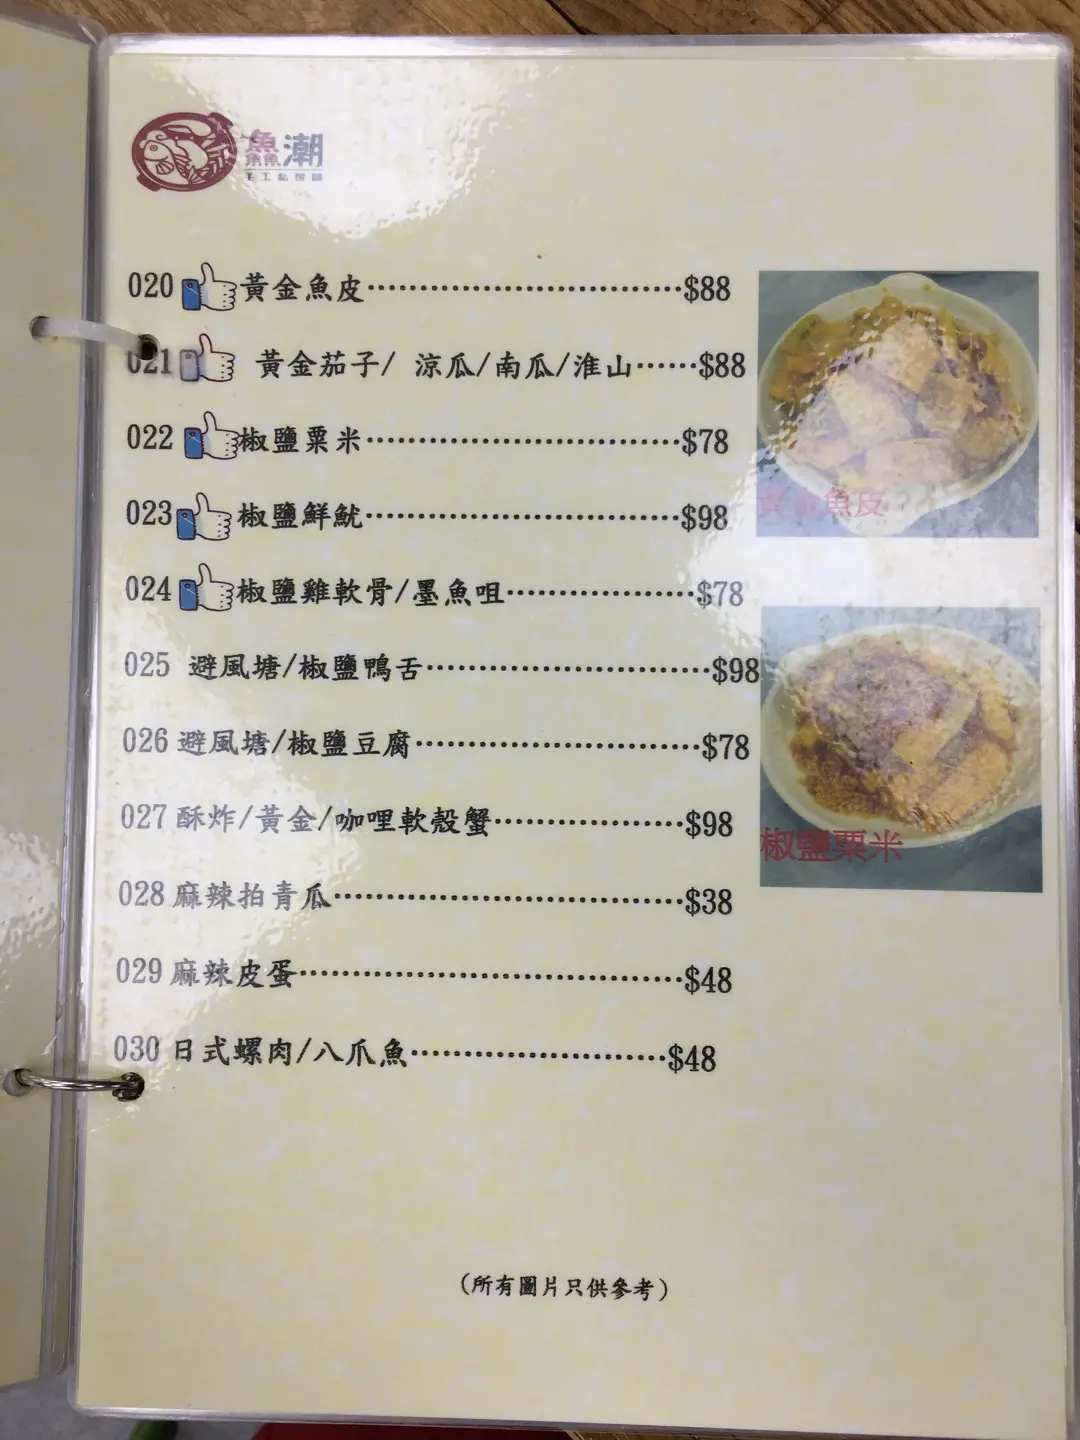 鱻潮
手工私房麵
020 黃金魚皮…………………………$88
021 黃金茄子/ 涼瓜/南瓜/淮山……$88
022 椒鹽粟米…………………………$78
023 椒鹽鮮魷…………………………$98
024 椒鹽雞軟骨/墨魚咀………………$78
025 避風塘/椒鹽鴨舌………………………$98
026 避風塘/椒鹽豆腐………………………$78
027 酥炸/黃金/咖哩軟殼蟹………………$98
028 麻辣拍青瓜……………………………$38
029 麻辣皮蛋………………………………$48
030 日式螺肉/八爪魚……………………$48
黃金魚皮
椒鹽粟米
(所有圖片只供參考)